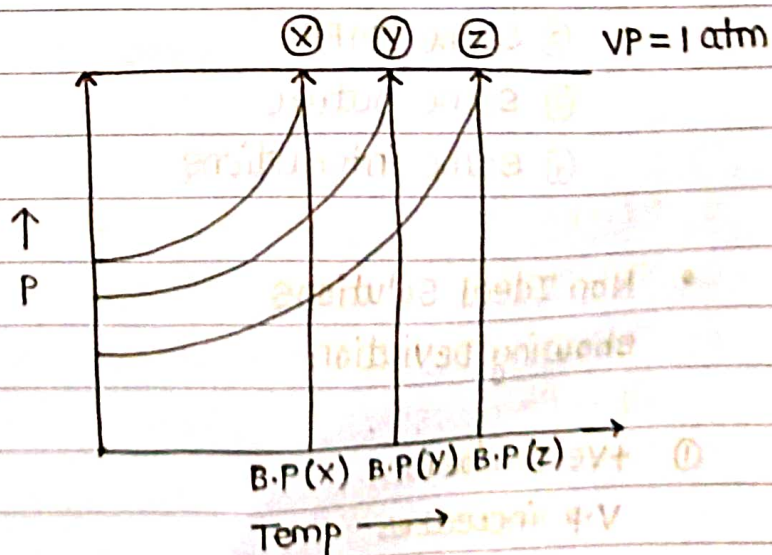 Ⓧ Ⓨ Ⓩ VP = 1 atm
↑
P
B.P(X) B.P(Y) B.P(Z)
Temp →